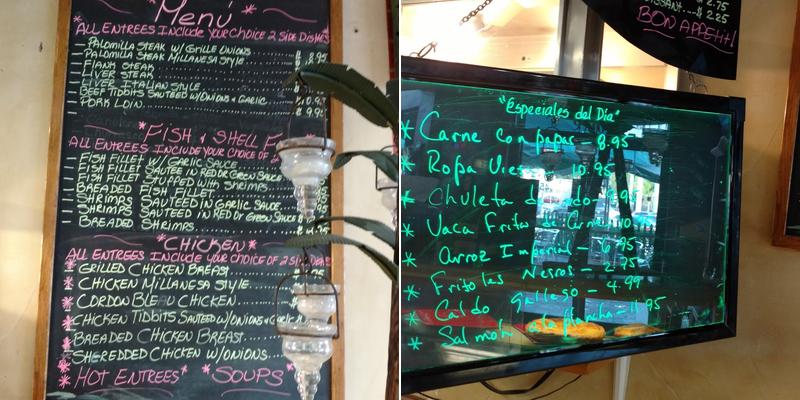 *Menú*
ALL ENTREES INCLUDE YOUR CHOICE 2 SIDE DISHES
— PALOMILLA STEAK W/ GRILLE ONIONS
— PALOMILLA STEAK MILLANESA STYLE 8.95
— FLANK STEAK
— LIVER STEAK
— LIVER ITALIAN STYLE
— BEEF TIDBITS SAUTEED W/ONIONS & GARLIC
— PORK LOIN 9.95
*FISH & SHELL
ALL ENTREES INCLUDE YOUR CHOICE OF 2
— FISH FILLET W/ GARLIC SAUCE
— FISH FILLET SAUTEE IN RED OR GREEN SAUCE
— FISH FILLET STUFFED WITH SHRIMPS
— BREADED FISH FILLET
— SHRIMPS SAUTEED IN GARLIC SAUCE
— SHRIMPS SAUTEED IN RED OR GREEN SAUCE
— BREADED SHRIMPS
*CHICKEN*
ALL ENTREES INCLUDE YOUR CHOICE OF 2 SIDE
* GRILLED CHICKEN BREAST
* CHICKEN MILLANESA STYLE
* CORDON BLEAU CHICKEN
* CHICKEN TIDBITS SAUTEED W/ONIONS &
* BREADED CHICKEN BREAST
* SHEREDDED CHICKEN W/ONIONS
* HOT ENTREES* *SOUPS*
2.75
2.25
BON APPETIT!
"Especiales del Dia"
* Carne con papas - 8.95
* Ropa 10.95
* Chuleta
* Vaca Frita de
* Arroz Imperial - 6.95
* Frijoles Negros - 2.75
* Caldo Gallego - 4.99
* Salmon a la plancha